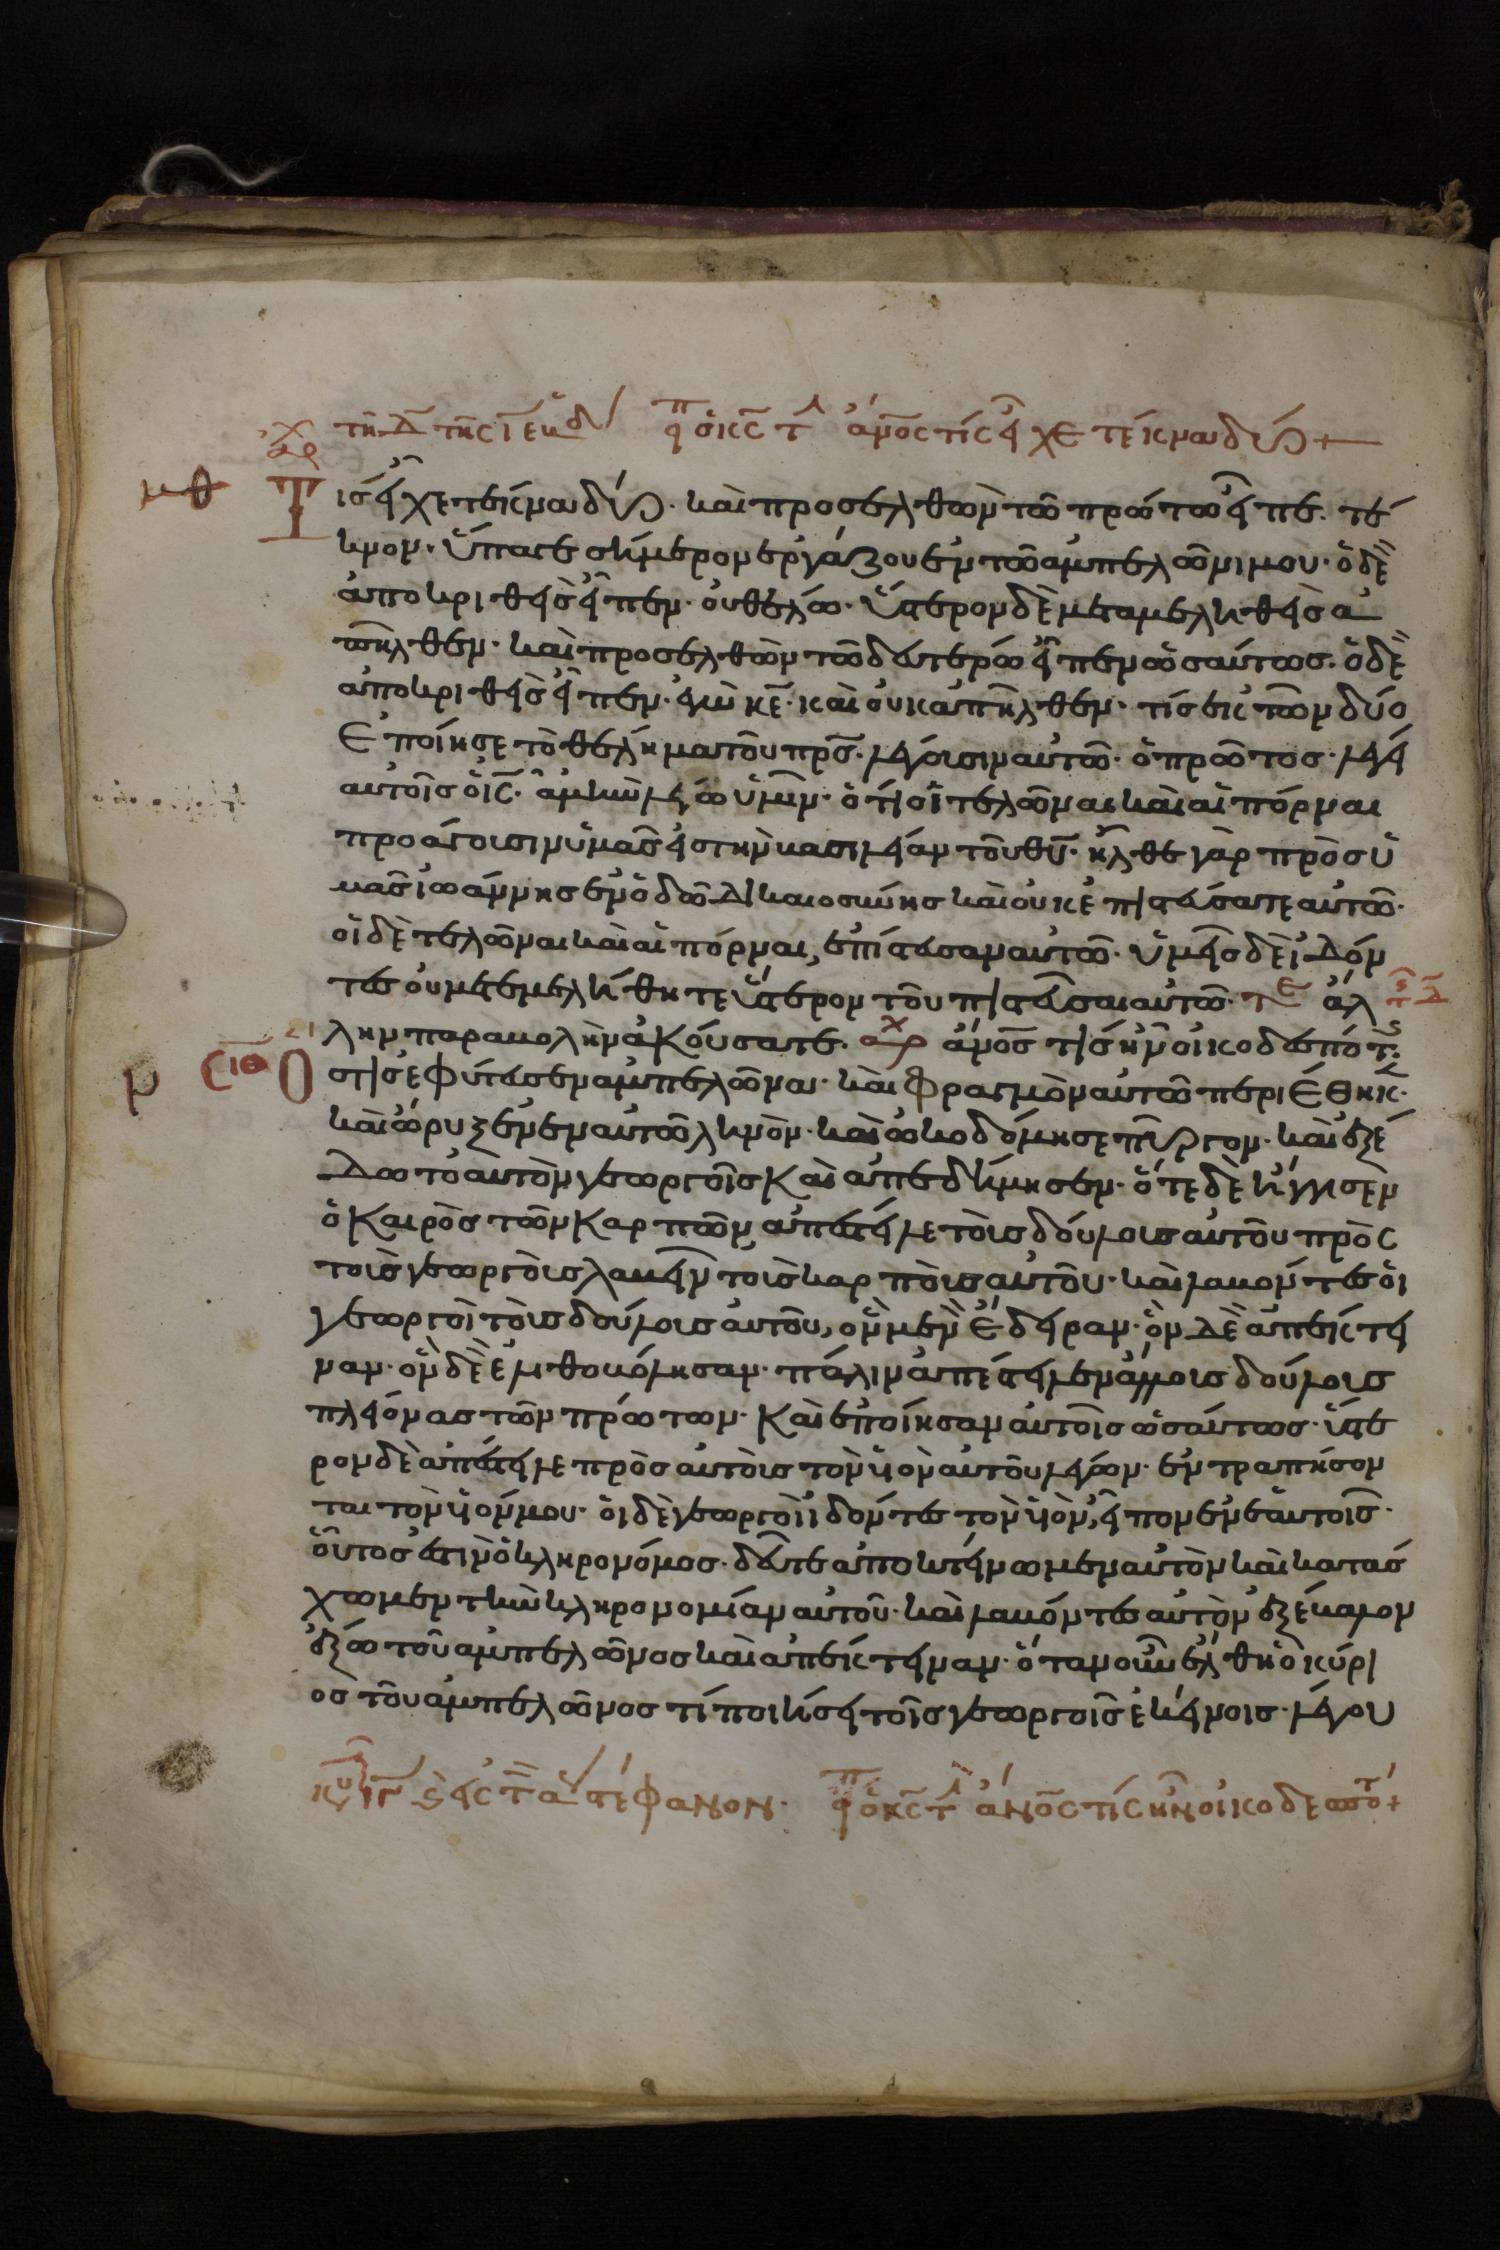 τῆ δ̅ τῆς ι̅ ἑβδ εἶπ ὁ κ̅ς̅ τ ἄν̅ο̅ς τίς εἶχε τέκνα δύο +
αρχ
μθ Τίς εἶχε τέκνα δύο. καὶ προσελθὼν τῶ πρώτω εἶπε. τέ
κνον. ὕπαγε σήμερον ἐργάζου ἐν τῶ ἀμπελῶνι μου. ὁ δὲ
ἀποκριθεὶς εἶπεν. οὐ θέλω. ὕστερον δὲ μεταμεληθεὶς ἀ
πῆλθεν. καὶ προσελθὼν τῶ δευτέρω εἶπεν ὡσαύτως. ὁ δὲ
ἀποκριθεὶς εἶπεν. ἐγὼ κ̅ε̅. καὶ οὐκ ἀπῆλθεν. τίς ἐκ τῶν δύο
ἐποίησε τὸ θέλημα τοῦ π̅ρ̅ς̅. λέγουσιν αὐτῶ. ὁ πρῶτος. λέγει
αὐτοῖς ὁ ι̅ς̅. ἀμὴν λέγω ὑμῖν. ὅτι οἱ τελῶναι καὶ αἱ πόρναι
προάγουσιν ὑμᾶς εἰς τὴν βασιλείαν τοῦ θ̅υ̅. ἦλθε γὰρ πρὸς ὑ
μᾶς ἰωάννης ἐν ὁδῶ δικαιοσύνης καὶ οὐκ ἐπιστεύσατε αὐτῶ.
οἱ δὲ τελῶναι καὶ αἱ πόρναι, ἐπίστευσαν αὐτῶ. ὑμεῖς δὲ ἰδόν
τες οὐ μετεμελήθητε ὕστερον τοῦ πιστεῦσαι αὐτῶ. τε ἄλ
λην παραβολὴν ἀκούσατε. αρχ ἄν̅ο̅ς τίς ἦν οἰκοδεσπότ.
ν σ̅ι̅θ̅ ὅστις ἐφύτευσεν ἀμπελῶνα. καὶ φραγμὸν αὐτῶ περιέθηκ.
καὶ ὤρυξεν ἐν αὐτῶ ληνόν. καὶ ὠκοδόμησε πύργον. καὶ ἐξέ
δωτο αὐτὸν γεωργοῖς καὶ ἀπεδήμησεν. ὅτε δὲ ἤγγισεν
ὁ καιρὸς τῶν καρπῶν ἀπέστειλε τοὺς δούλους αὐτοῦ πρὸς
τοὺς γεωργοὺς λαβεῖν τοὺς καρποὺς αὐτοῦ. καὶ λαβόντες οἱ
γεωργοὶ τοὺς δούλους αὐτοῦ, ὃν μὲν ἔδειραν. ὃν δὲ ἀπέκτει
ναν. ὃν δὲ ἐλιθοβόλησαν. πάλιν ἀπέστειλεν ἄλλους δούλους
πλείονας τῶν πρώτων. καὶ ἐποίησαν αὐτοῖς ὡσαύτως. ὕστε
ρον δὲ ἀπέστειλε πρὸς αὐτοὺς τὸν υἱὸν αὐτοῦ λέγων. ἐντραπήσον
ται τὸν υἱόν μου. οἱ δὲ γεωργοὶ ἰδόντες τὸν υἱὸν, εἶπον ἐν ἑαυτοῖς.
οὗτος ἐστιν ὁ κληρονόμος. δεῦτε ἀποκτείνωμεν αὐτὸν καὶ κατάσ
χωμεν τὴν κληρονομίαν αὐτοῦ. καὶ λαβόντες αὐτὸν ἐξέβαλον
ἔξω τοῦ ἀμπελῶνος καὶ ἀπέκτειναν. ὅταν οὖν ἔλθη ὁ κύρι
ος τοῦ ἀμπελῶνος τί ποιήσει τοῖς γεωργοῖς ἐκείνοις. λέγου
κυ ιγ εἰς τ α στέφανον. εἶπ ὁ κ̅ς̅ τ ἄν̅ο̅ς τίς ἦν οἰκοδεσπότ +